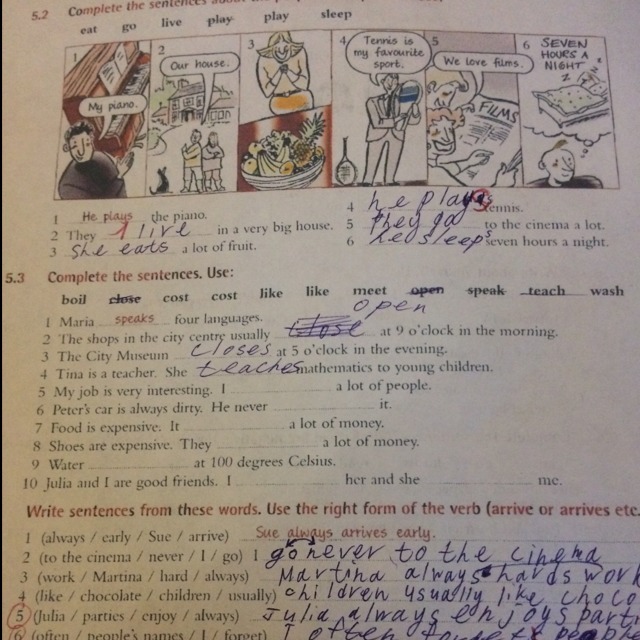 5.2 Complete the sentences
eat go live play play sleep
1
My piano.
2
Our house.
3
4
Tennis is
my favourite
sport.
5
We love films.
FILMS
6 SEVEN
HOURS A
NIGHT
z z
1 He plays the piano.
2 They live in a very big house.
3 She eats a lot of fruit.
4 he plays tennis.
5 they go to the cinema a lot.
6 he sleeps seven hours a night.
5.3 Complete the sentences. Use:
boil close cost cost like like meet open speak teach wash
1 Maria speaks four languages.
open
2 The shops in the city centre usually close at 9 o'clock in the morning.
3 The City Museum closes at 5 o'clock in the evening.
4 Tina is a teacher. She teaches mathematics to young children.
5 My job is very interesting. I a lot of people.
6 Peter's car is always dirty. He never it.
7 Food is expensive. It a lot of money.
8 Shoes are expensive. They a lot of money.
9 Water at 100 degrees Celsius.
10 Julia and I are good friends. I her and she me.
Write sentences from these words. Use the right form of the verb (arrive or arrives etc.
1 (always / early / Sue / arrive) Sue always arrives early.
2 (to the cinema / never / I / go) I go never to the cinema
3 (work / Martina / hard / always) Martina always hards work
4 (like / chocolate / children / usually) children usually like choco
5 (Julia / parties / enjoy / always) Julia always enjoys part
6 (often / people's names / I / forget) I often